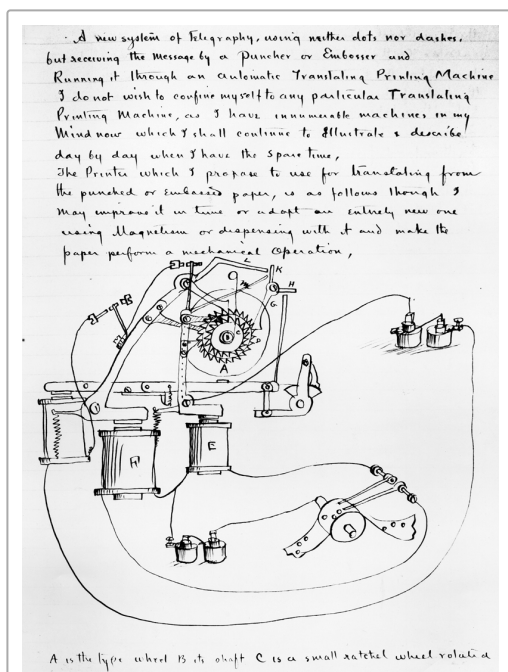 A new system of Telegraphy, using neither dots nor dashes,
but receiving the message by a Puncher or Embosser and
Running it through an automatic Translating Printing Machine
I do not wish to confine myself to any particular Translating
Printing Machine, as I have innumerable machines in my
Mind now which I shall continue to Illustrate & describe
day by day when I have the spare time,
The Printer which I propose to use for translating from
the punched or Embossed paper, is as follows though I
may improve it in time or adapt an entirely new one
using Magnetism or dispensing with it and make the
paper perform a mechanical operation,
L
K
H
G
D
B
A
E
A is the type wheel B its shaft C is a small ratchet wheel rotated